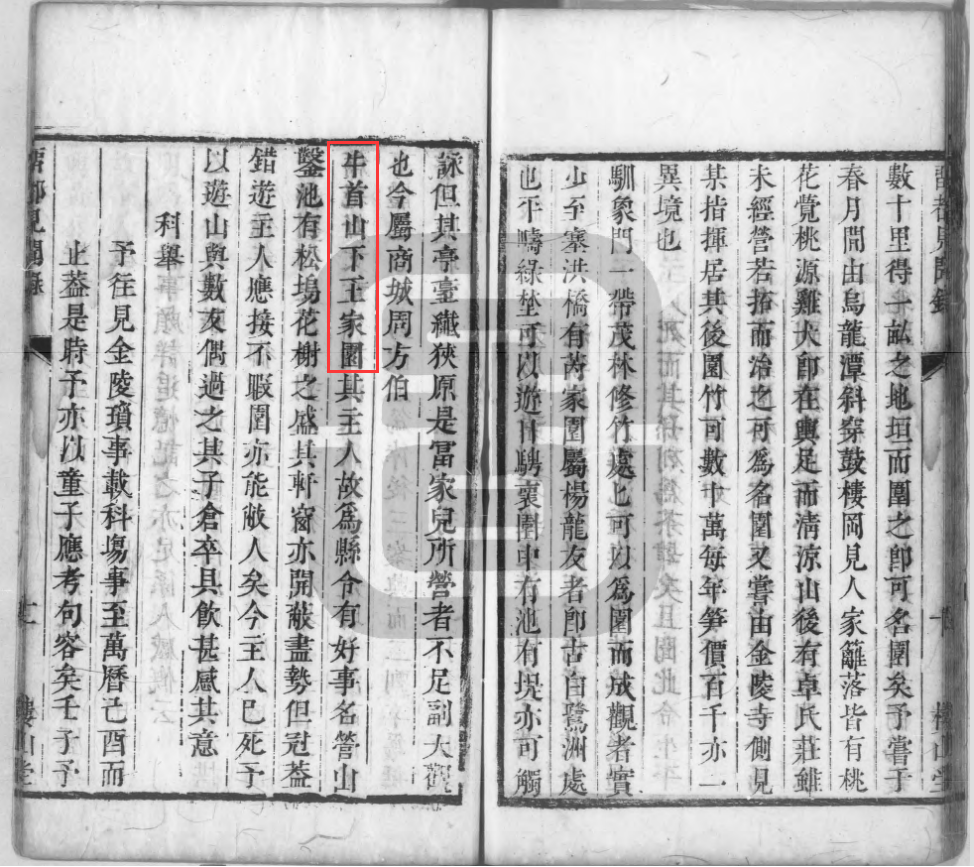 數十里得一訟之地垣而圍之卽可名園矣予嘗于
春月閒由烏龍潭斜穿鼓樓岡見人家籬落皆有桃
花覺桃源雞犬卽在輿足而清涼山後有卓氏莊雖
未經營若拓而治之可爲名園又嘗由金陵寺側見
某指揮居其後園竹可數十萬每年笋價百千亦一
異境也
馴象門一帶茂林修竹處也可以爲園而成觀者實
少至塞洪橋有芮家園屬楊龍友者卽古白鷺洲處
也平疇綠埜可以遊騁園中有池有堤亦可觴
詠但其亭臺纖狹原是富家兒所營者不足副大觀
也今屬商城周方伯
牛首山下王家園其主人故爲縣令有好事名管山
鑿池有松塢花榭之盛其軒窗亦開蔽盡勢但冠蓋
錯遊主人應接不暇園亦能敝人矣今主人已死予
以遊山與數友偶過之其子倉卒具飲甚感其意
科舉
予往見金陵瑣事載科塲事至萬曆己酉而
止葢是時予亦以童子應考句容矣壬子予
舊都見聞錄
樓山堂